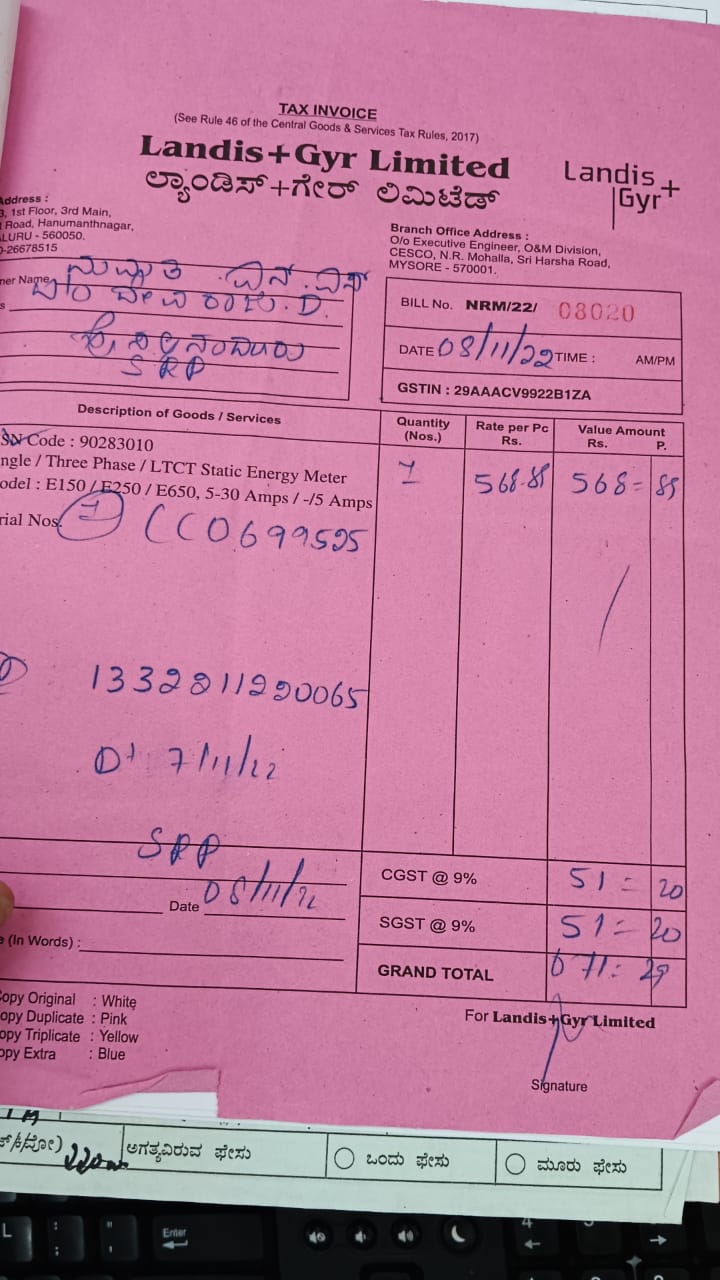 TAX INVOICE
(See Rule 46 of the Central Goods & Services Tax Rules, 2017)
Landis+Gyr Limited
ಲ್ಯಾಂಡಿಸ್+ಗೇರ್ ಲಿಮಿಟೆಡ್
Landis+
Gyr
Address :
3, 1st Floor, 3rd Main,
Road, Hanumanthnagar,
ALURU - 560050.
0-26678515
Branch Office Address :
O/o Executive Engineer, O&M Division,
CESCO, N.R. Mohalla, Sri Harsha Road,
MYSORE - 570001.
mer Name ಎನ್. ಎಸ್
D.
SRP
BILL No. NRM/22/ 08020
DATE 08/11/22 TIME : AM/PM
GSTIN : 29AAACV9922B1ZA
Description of Goods / Services Quantity (Nos.) Rate per Pc Rs. Value Amount Rs. P.
SN Code : 90283010
ngle / Three Phase / LTCT Static Energy Meter 1 568.85 568= 85
odel : E150 / E250 / E650, 5-30 Amps / -/5 Amps
rial Nos. 1 CC0699525
1332211220065
Dt 7/11/22
SRP
CGST @ 9% 51= 20
Date 08/11/22
SGST @ 9% 51= 20
e (In Words) :
GRAND TOTAL 671= 29
Copy Original : White
opy Duplicate : Pink
opy Triplicate : Yellow
opy Extra : Blue
For Landis+Gyr Limited
Signature
ಅಗತ್ಯವಿರುವ ಫೇಸು ಒಂದು ಫೇಸು ಮೂರು ಫೇಸು
L : ; " ' Enter 4